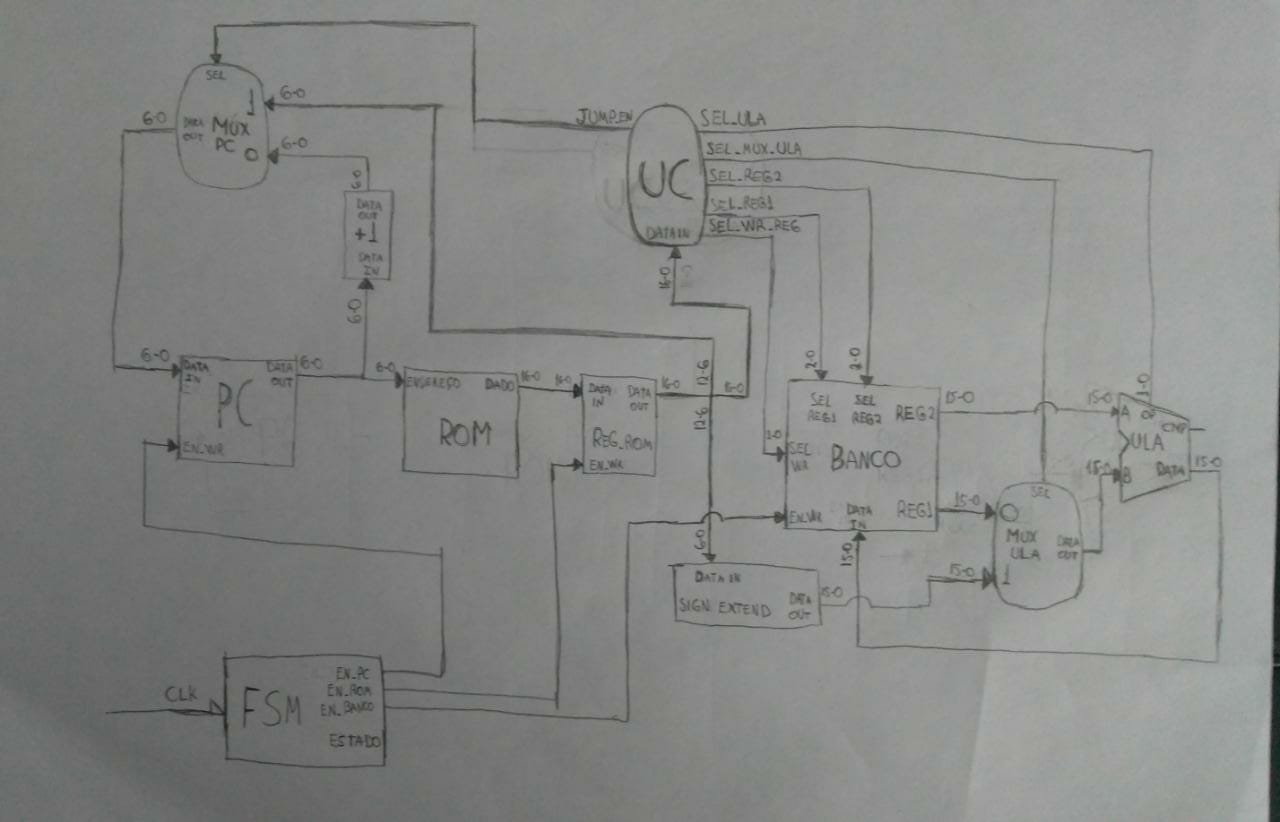 SEL
1
6-0
DATA OUT
MUX PC
0
6-0
6-0
6-0
DATA OUT
+1
DATA IN
6-0
JUMP_EN
UC
DATA IN
SEL_ULA
SEL_MUX_ULA
SEL_REG2
SEL_REG1
SEL_WR_REG
16-0
6-0
DATA IN
DATA OUT
PC
EN_WR
6-0
6-0
ENDEREÇO
DADO
ROM
16-0
16-0
DATA IN
DATA OUT
REG_ROM
EN_WR
16-0
16-0
12-6
12-6
2-0
2-0
SEL REG1
SEL REG2
REG2
SEL WR
BANCO
EN_WR
DATA IN
REG1
15-0
15-0
15-0
15-0
A
OP
CMP
ULA
B
DATA
15-0
15-0
SEL
0
MUX ULA
DATA OUT
1
15-0
15-0
15-0
6-0
DATA IN
SIGN EXTEND
DATA OUT
CLK
FSM
EN_PC
EN_ROM
EN_BANCO
ESTADO